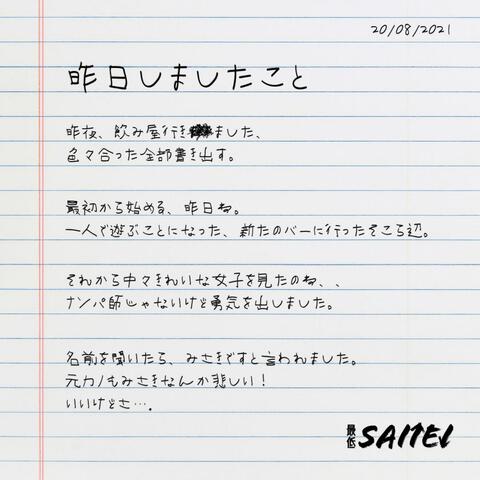 20/08/2021
昨日しましたこと
昨夜、飲み屋行きました、
色々合った全部書き出す。
最初から始める、昨日ね。
一人で遊ぶことになった、新たのバーに行ったそこら辺。
それから中々きれいな女子を見たのね、、
ナンパ師じゃないけど勇気を出しました。
名前を聞いたら、みさきですと言われました。
元カノもみさきなんか悲しい！
いいけどさ…．
最低 SAITEI